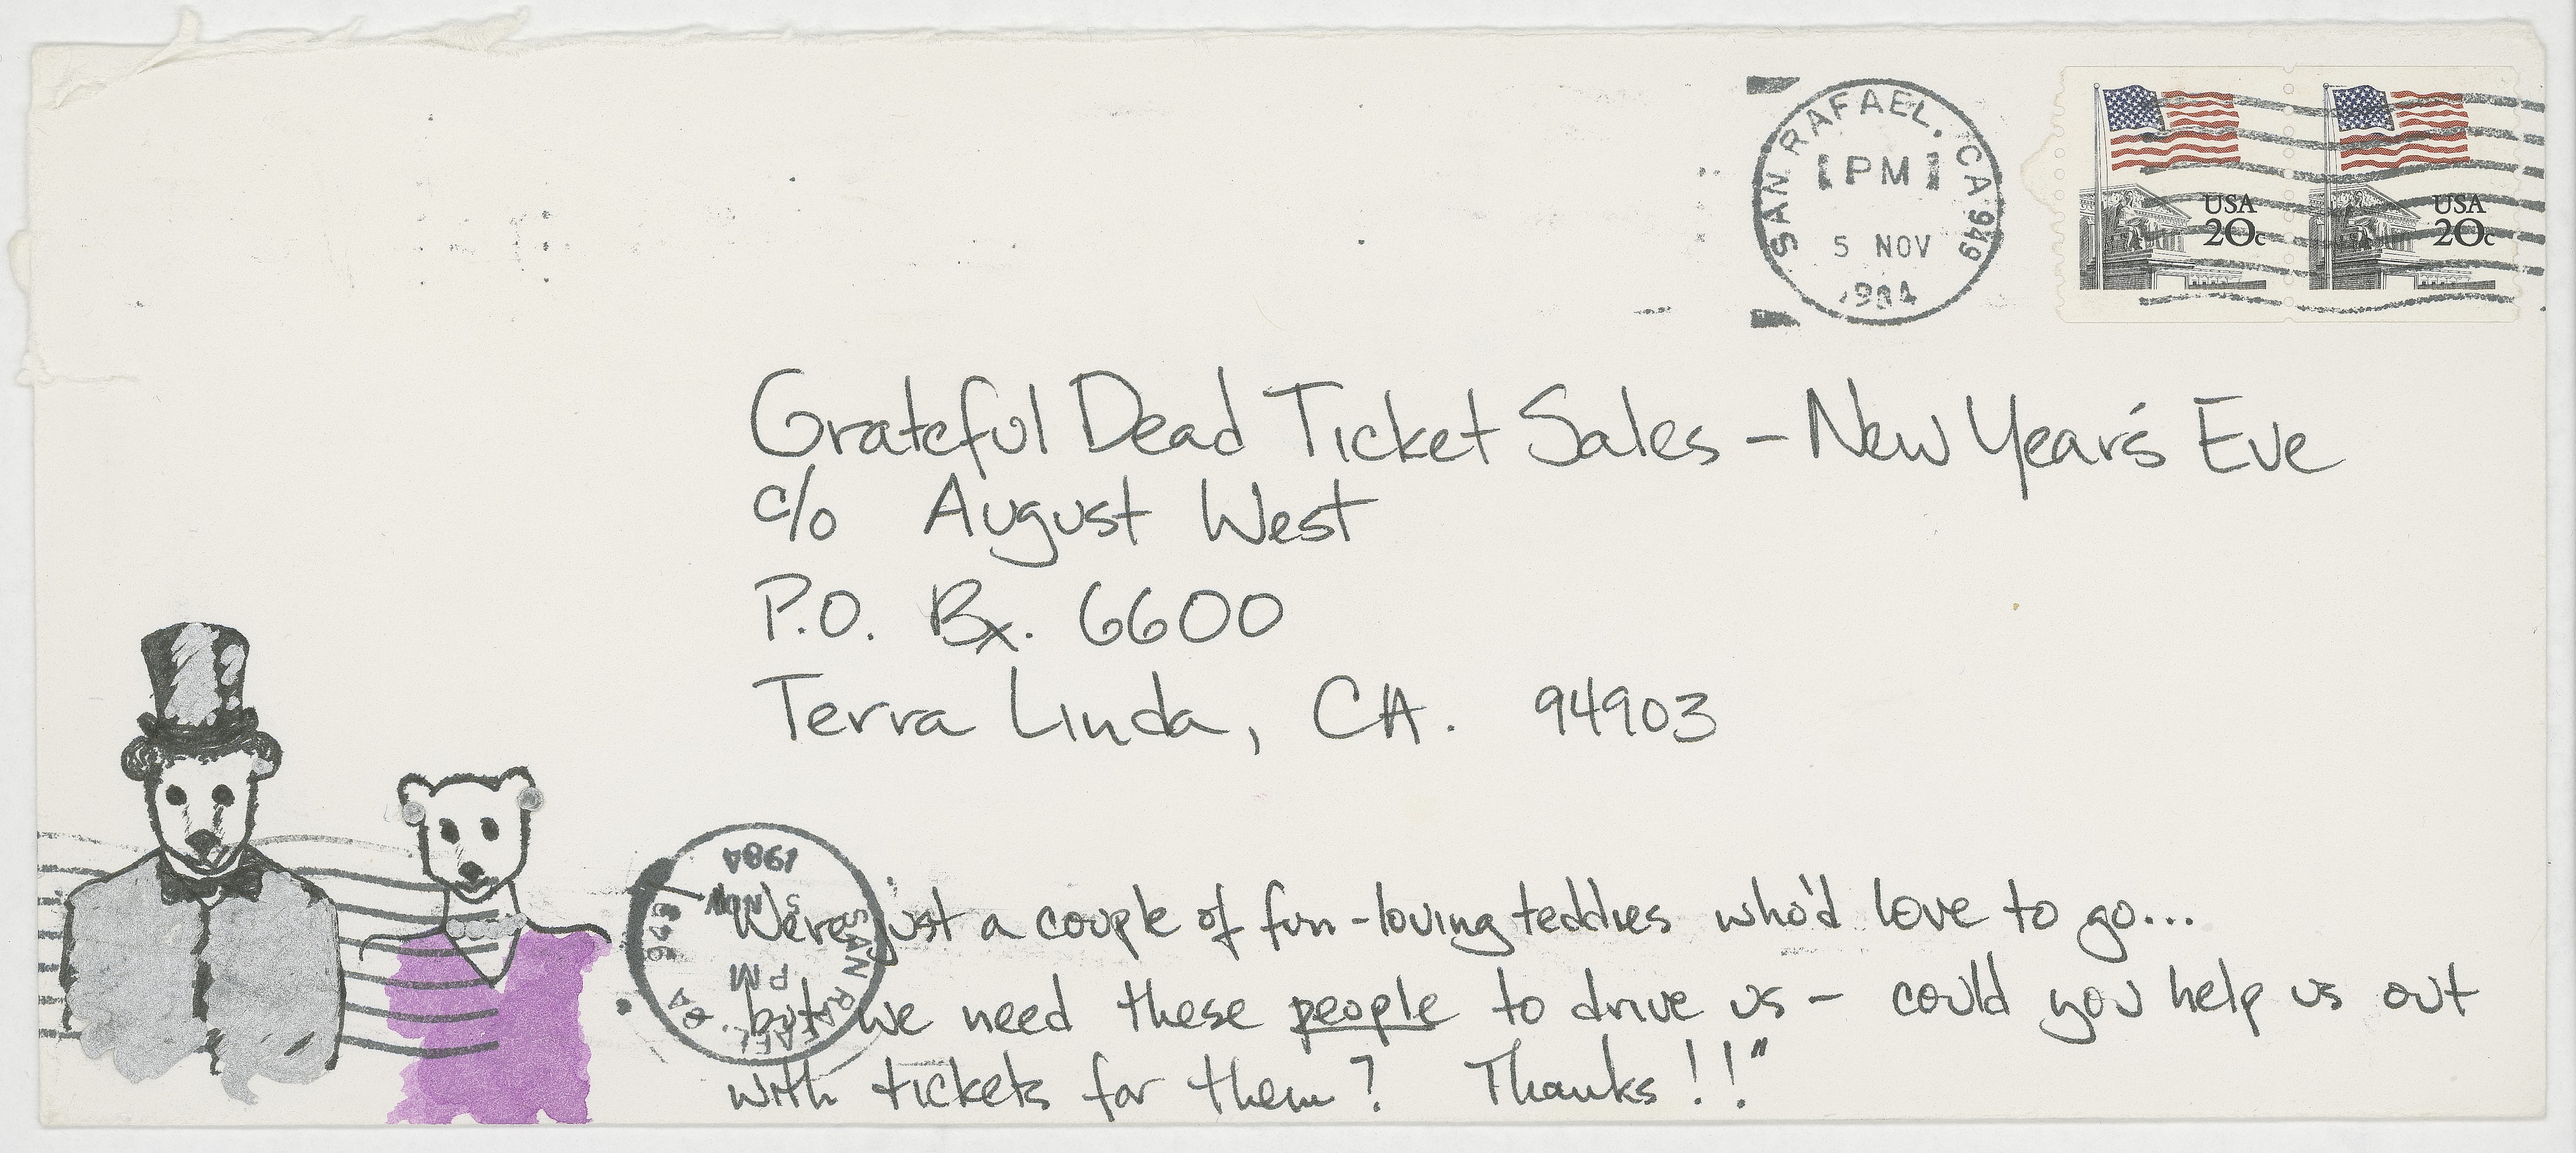 SAN RAFAEL, CA 949
PM
5 NOV
1984
USA
20c
USA
20c
Grateful Dead Ticket Sales - New Year's Eve
c/o August West
P.O. Bx. 6600
Terra Linda, CA. 94903
SAN RAFAEL, CA 949
PM
5 NOV
1984
"We're just a couple of fun-loving teddies who'd love to go...
but we need these people to drive us - could you help us out
with tickets for them? Thanks!!"